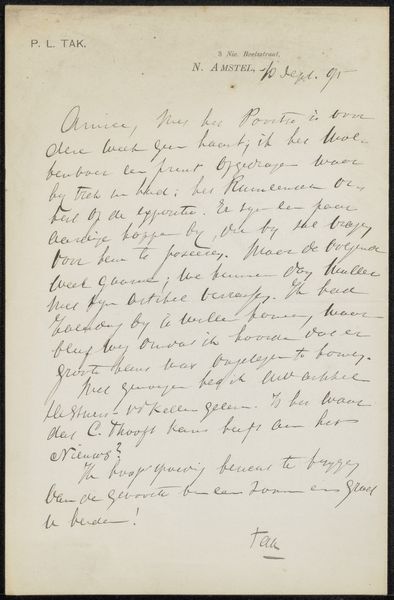 P. L. TAK.
3 Nic. Beetsstraat.
N. AMSTEL, 10 Sept. 95
Amice, Met het Portret is voor
deze week geen haast; ik heb
een prent opgedragen waar
by trek in had; het
op de expositie. Er zyn een paar
aardige koppen by, die by
voor hem te poseeren. Maar de volgende
week gaarne; we kunnen dan Muller
met zyn artikel verrassen. Ik had
Zaterdag by U willen komen, maar
bleef weg omdat ik hoorde dat er
groote kans was
Met genoegen heb ik Uw artikel
gelezen. Is het waar
dat C. Thooft kans heeft aan het
Nieuws?
Ik hoop spoedig bericht te krygen
van de geboorte van een zoon en groet
U beiden!
Tak